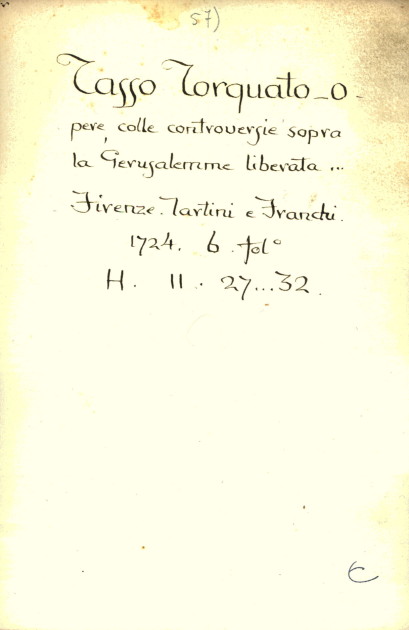 57)
Tasso Torquato_o_
pere, colle controversie sopra
la Gerusalemme liberata ...
Firenze. Tartini e Franchi.
1724. 6 fol°
H. II. 27...32.
C